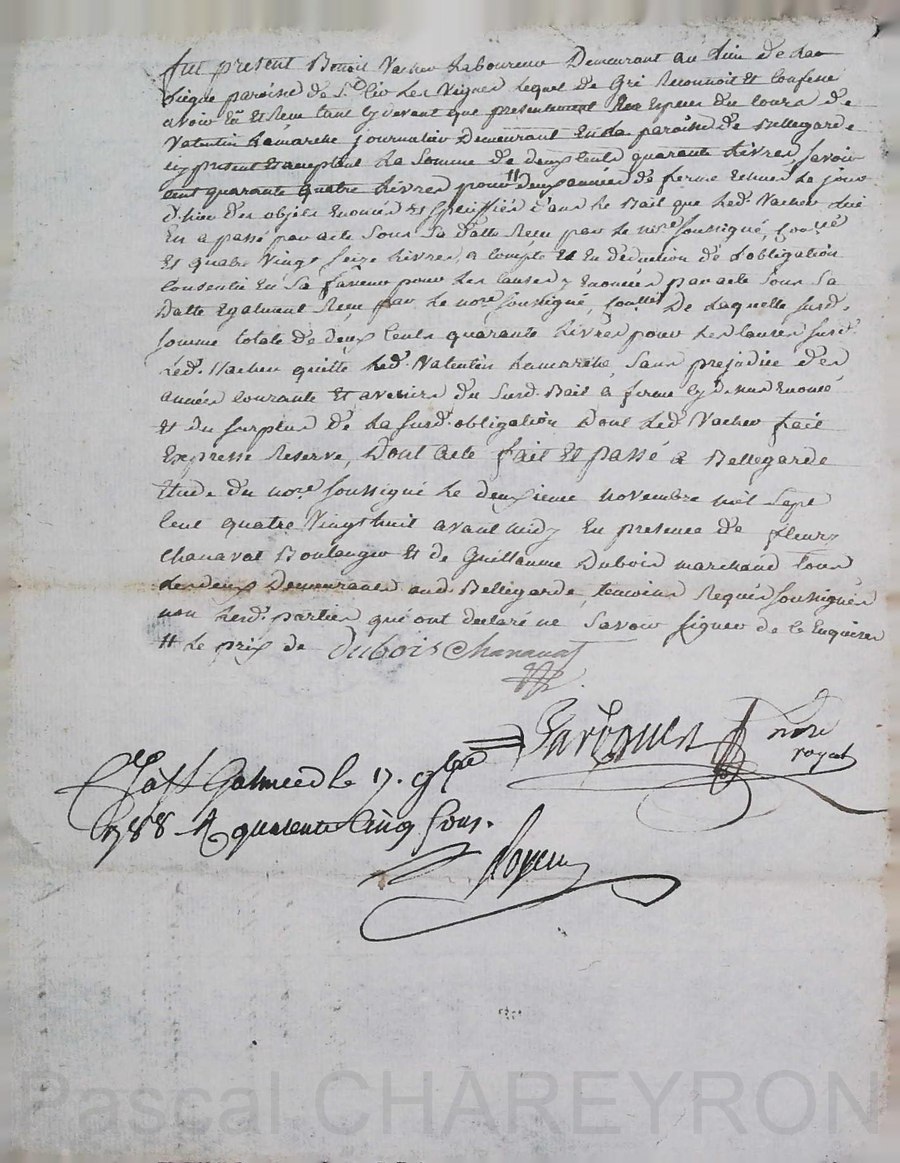 fut present Benoit Vacher Laboureur Demeurant au Lieu de Lao
Liegue paroisse de St. Cir Les Vignes Lequel de Gré Reconnoit et Confesse
avoir Eu et Reçu tant cy devant que presentement En Especes du Cours de
Valentin Lamarche journalier Demeurant En La paroisse de Bellegarde
icy present et acceptant La Somme de deux Cents quarante Livres, Savoir
Cent quarante quatre Livres pour // deux années de ferme Echues Le jour
d'hier des objets Enoncés et Specifiés dans Le Bail que Led. Vacher Lui
En a passé par acte Sous Sa Datte Reçu par Le nore. soussigné, Conllé
Et quatre Vingt Seize Livres, a Compte et En déduction de L'obligation
Consentie En Sa faveur pour les Causes y Enoncées par acte Sous Sa
Datte Egalement Reçu par Le nore. soussigné, Conllé. De Laquelle Susd.
Somme totale de deux Cents quarante Livres pour Les Causes Susd.
Led. Vacher quitte Led. Valentin Lamarche, Sans prejudice des
années Courante Et avenirs du Susd. Bail a ferme cy dessus Enoncé
Et du Surplus de La Susd. obligation Dont Led. Vacher fait
Expresse Reserve, Dont acte fait Et passé a Bellegarde
Etude du nore. soussigné Le deuxieme novembre mil Sept
Cent quatre Vingt huit avant midy En presence de fleury
Chanavat Boulanger Et de Guillaume Dubois marchand tous
Les deux Demeurants aud. Bellegarde, temoins Requis soussignés
non Lesd. parties qui ont declaré ne Savoir signer de ce Enquises
// Le prix de Dubois Chanavat
nore
royal
Galmier le 17. 9bre
1788 R quarante cinq sous.